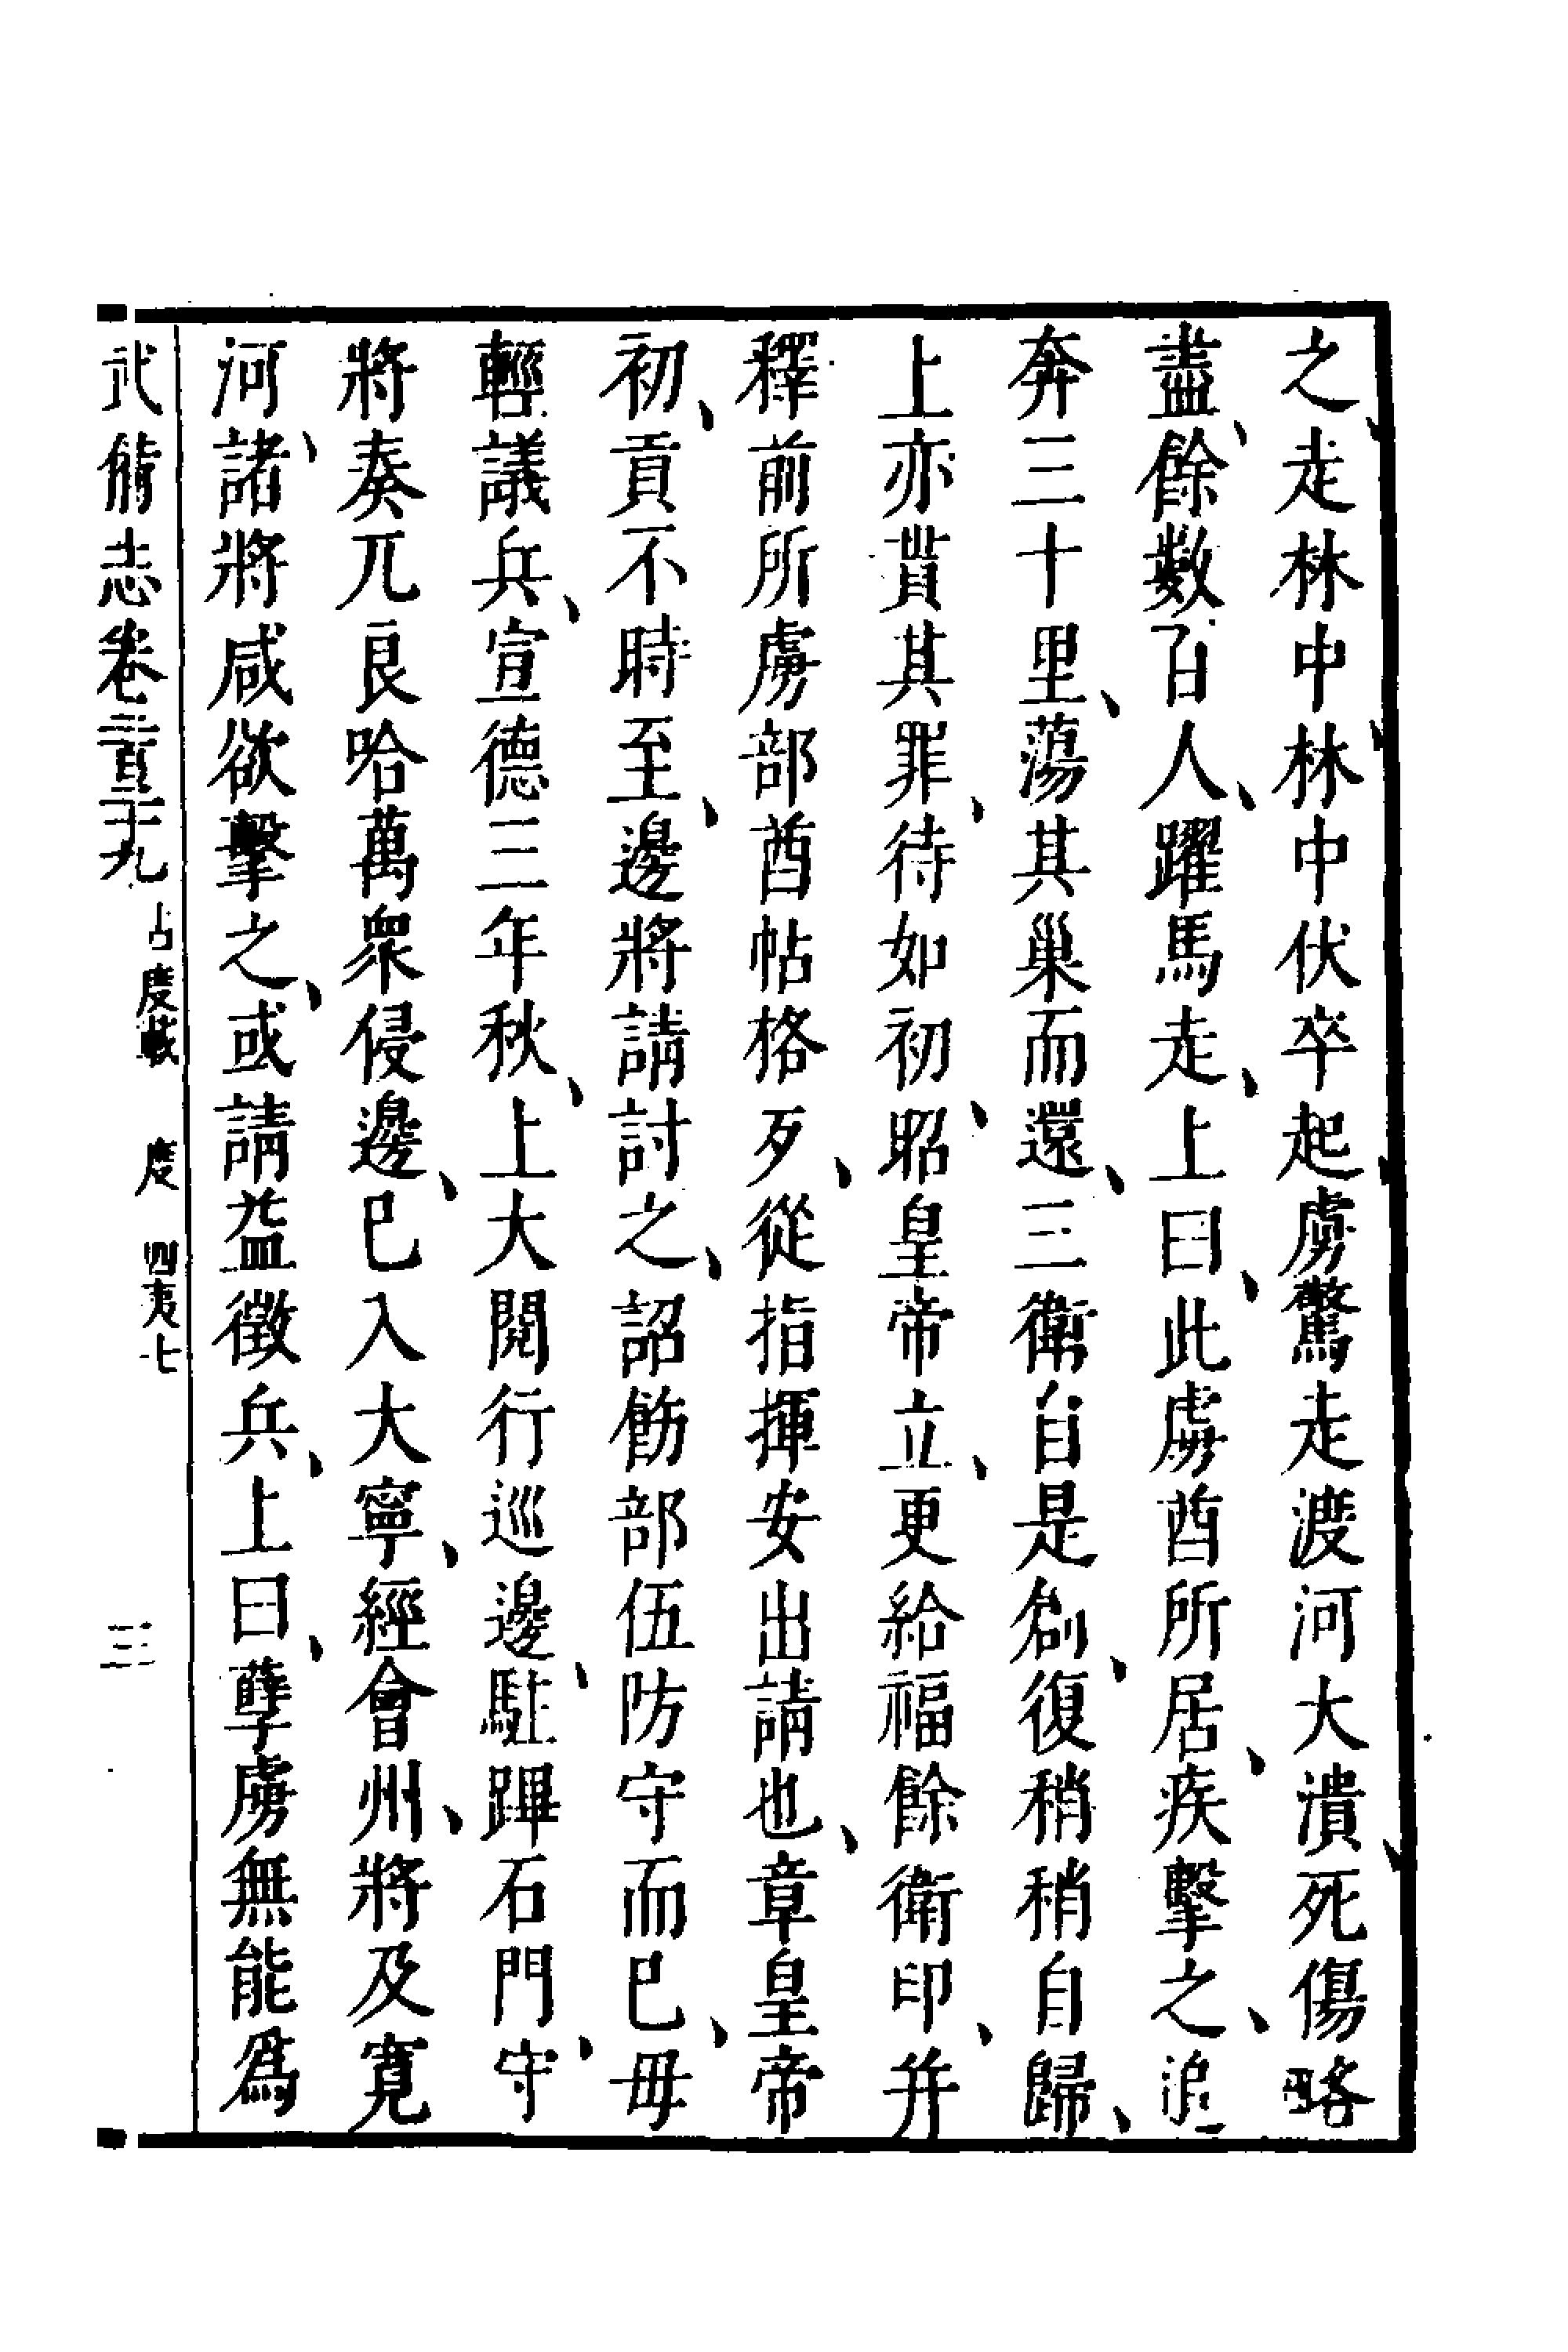 之走林中林中伏卒起虜驚走渡河大潰死傷略
盡、餘數百人、躍馬走、上曰、此虜酋所居、疾擊之、追
奔三十里、蕩其巢而還、三衛自是創、復稍稍自歸、
上亦貰其罪、待如初、昭皇帝立、更給福餘衛印、并
釋前所虜部酋帖格歹、從指揮安出請也、章皇帝
初、貢不時至、邊將請討之、詔飭部伍防守而已、毋
輕議兵、宣德三年秋、上大閱行巡邊、駐蹕石門、守
將奏兀良哈萬衆侵邊、已入大寧、經會州、將及寬
河、諸將咸欲擊之、或請益徵兵、上曰、孽虜無能爲
武備志卷二百二十九 占度載 度 四夷七 三